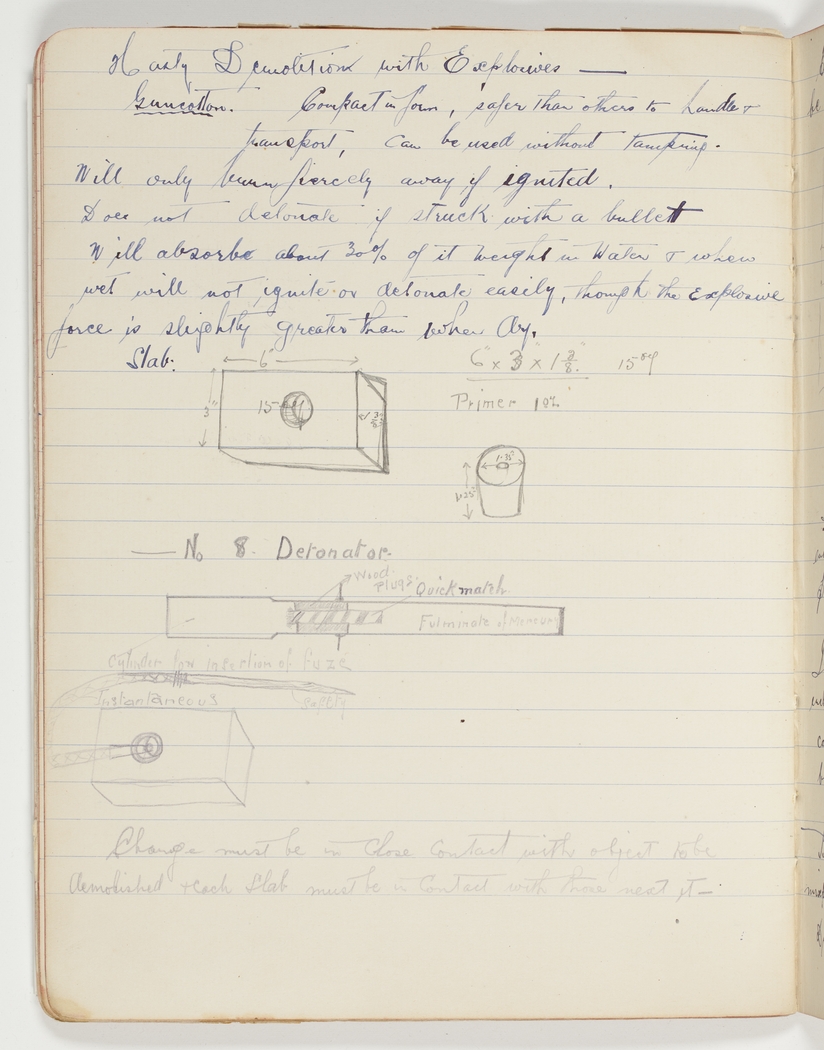 Hasty Demolition with Explosives —
Guncotton. Compact in form, safer than others to handle &
transport, can be used without tamping.
Will only burn fiercely away if ignited.
Does not detonate if struck with a bullett
Will absorbe about 30% of it weight in Water & when
wet will not ignite or detonate easily, though the Explosive
force is slightly greater than when Dry.
Slab:
6"
6" x 3" x 1 3/8" 15 oz
3"
15
1 3/8
Primer 1 oz
1.35"
1.25"
— No 8. Detonator.
Wood
Plugs.
Quickmatch.
Fulminate of Mercury
Cylinder for insertion of fuze
Instantaneous
Safety
Charge must be in close contact with object to be
demolished & each Slab must be in contact with those next it —